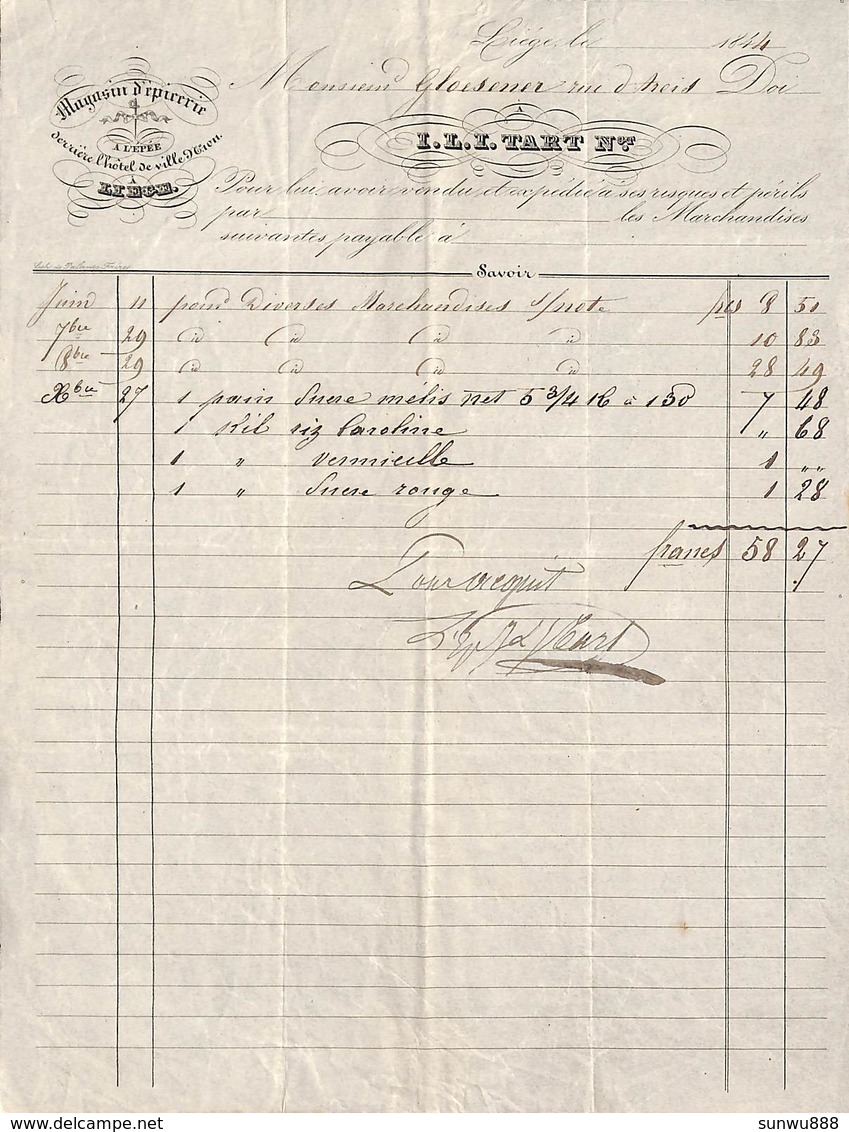 Liège, le 1844
Monsieur Gloesener rue d'Areis Doi
Magasin d'épicerie
A L'EPÉE
derrière l'hôtel de ville
A
LIEGE.
À
I. L. I. TART Nᵗ
Pour lui avoir vendu et expédié à ses risques et périls
par les Marchandises
suivantes payable à
Savoir
Juin 11 pour Diverses Marchandises s/note frcs 8 51
7bre 29 id id id id 10 83
8bre 29 id id id id 28 49
Xbre 27 1 pain Sucre mélis net 5 3/4 K à 130 7 48
1 Kil riz Caroline " 68
1 " vermicelle 1 ""
1 " Sucre rouge 1 28
francs 58 27
Pour acquit
Tart
sunwu888